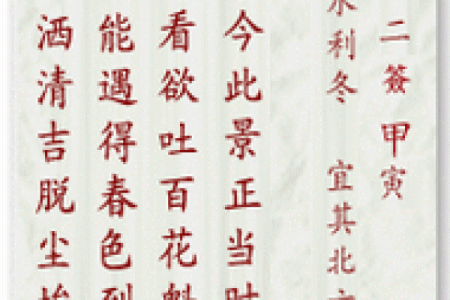 二簽甲寅
水利冬 宜其北方
今此景正当时
看欲吐百花魁
能遇得春色到
洒清吉脱尘埃